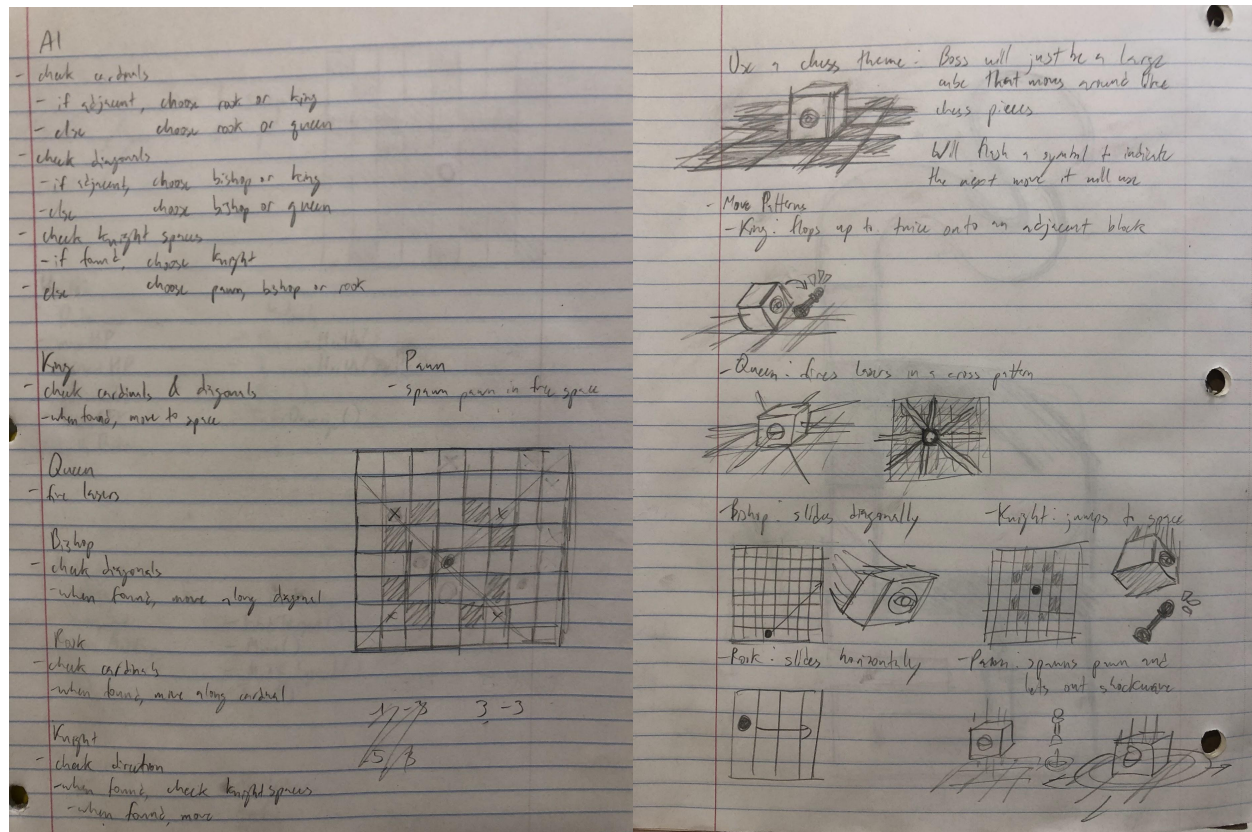 AI
- check cardinals
- if adjacent, choose rook or king
- else choose rook or queen
- check diagonals
- if adjacent, choose bishop or king
- else choose bishop or queen
- check knight spaces
- if found, choose knight
- else choose pawn, bishop or rook
King
- check cardinals & diagonals
- when found, move to space
Pawn
- spawn pawn in free space
Queen
- fire lasers
Bishop
- check diagonals
- when found, move along diagonal
Rook
- check cardinals
- when found, move along cardinal
3 -3
Knight
- check direction
- when found, check knight spaces
- when found, move
Use a chess theme: Boss will just be a large
cube that moves around like
chess pieces
Will flash a symbol to indicate
the next move it will use
- Move Patterns
- King: flops up to twice onto an adjacent block
- Queen: fires lasers in a cross pattern
- Bishop: slides diagonally
- Knight: jumps to space
- Rook: slides horizontally
- Pawn: spawns pawn and
lets out shockwave